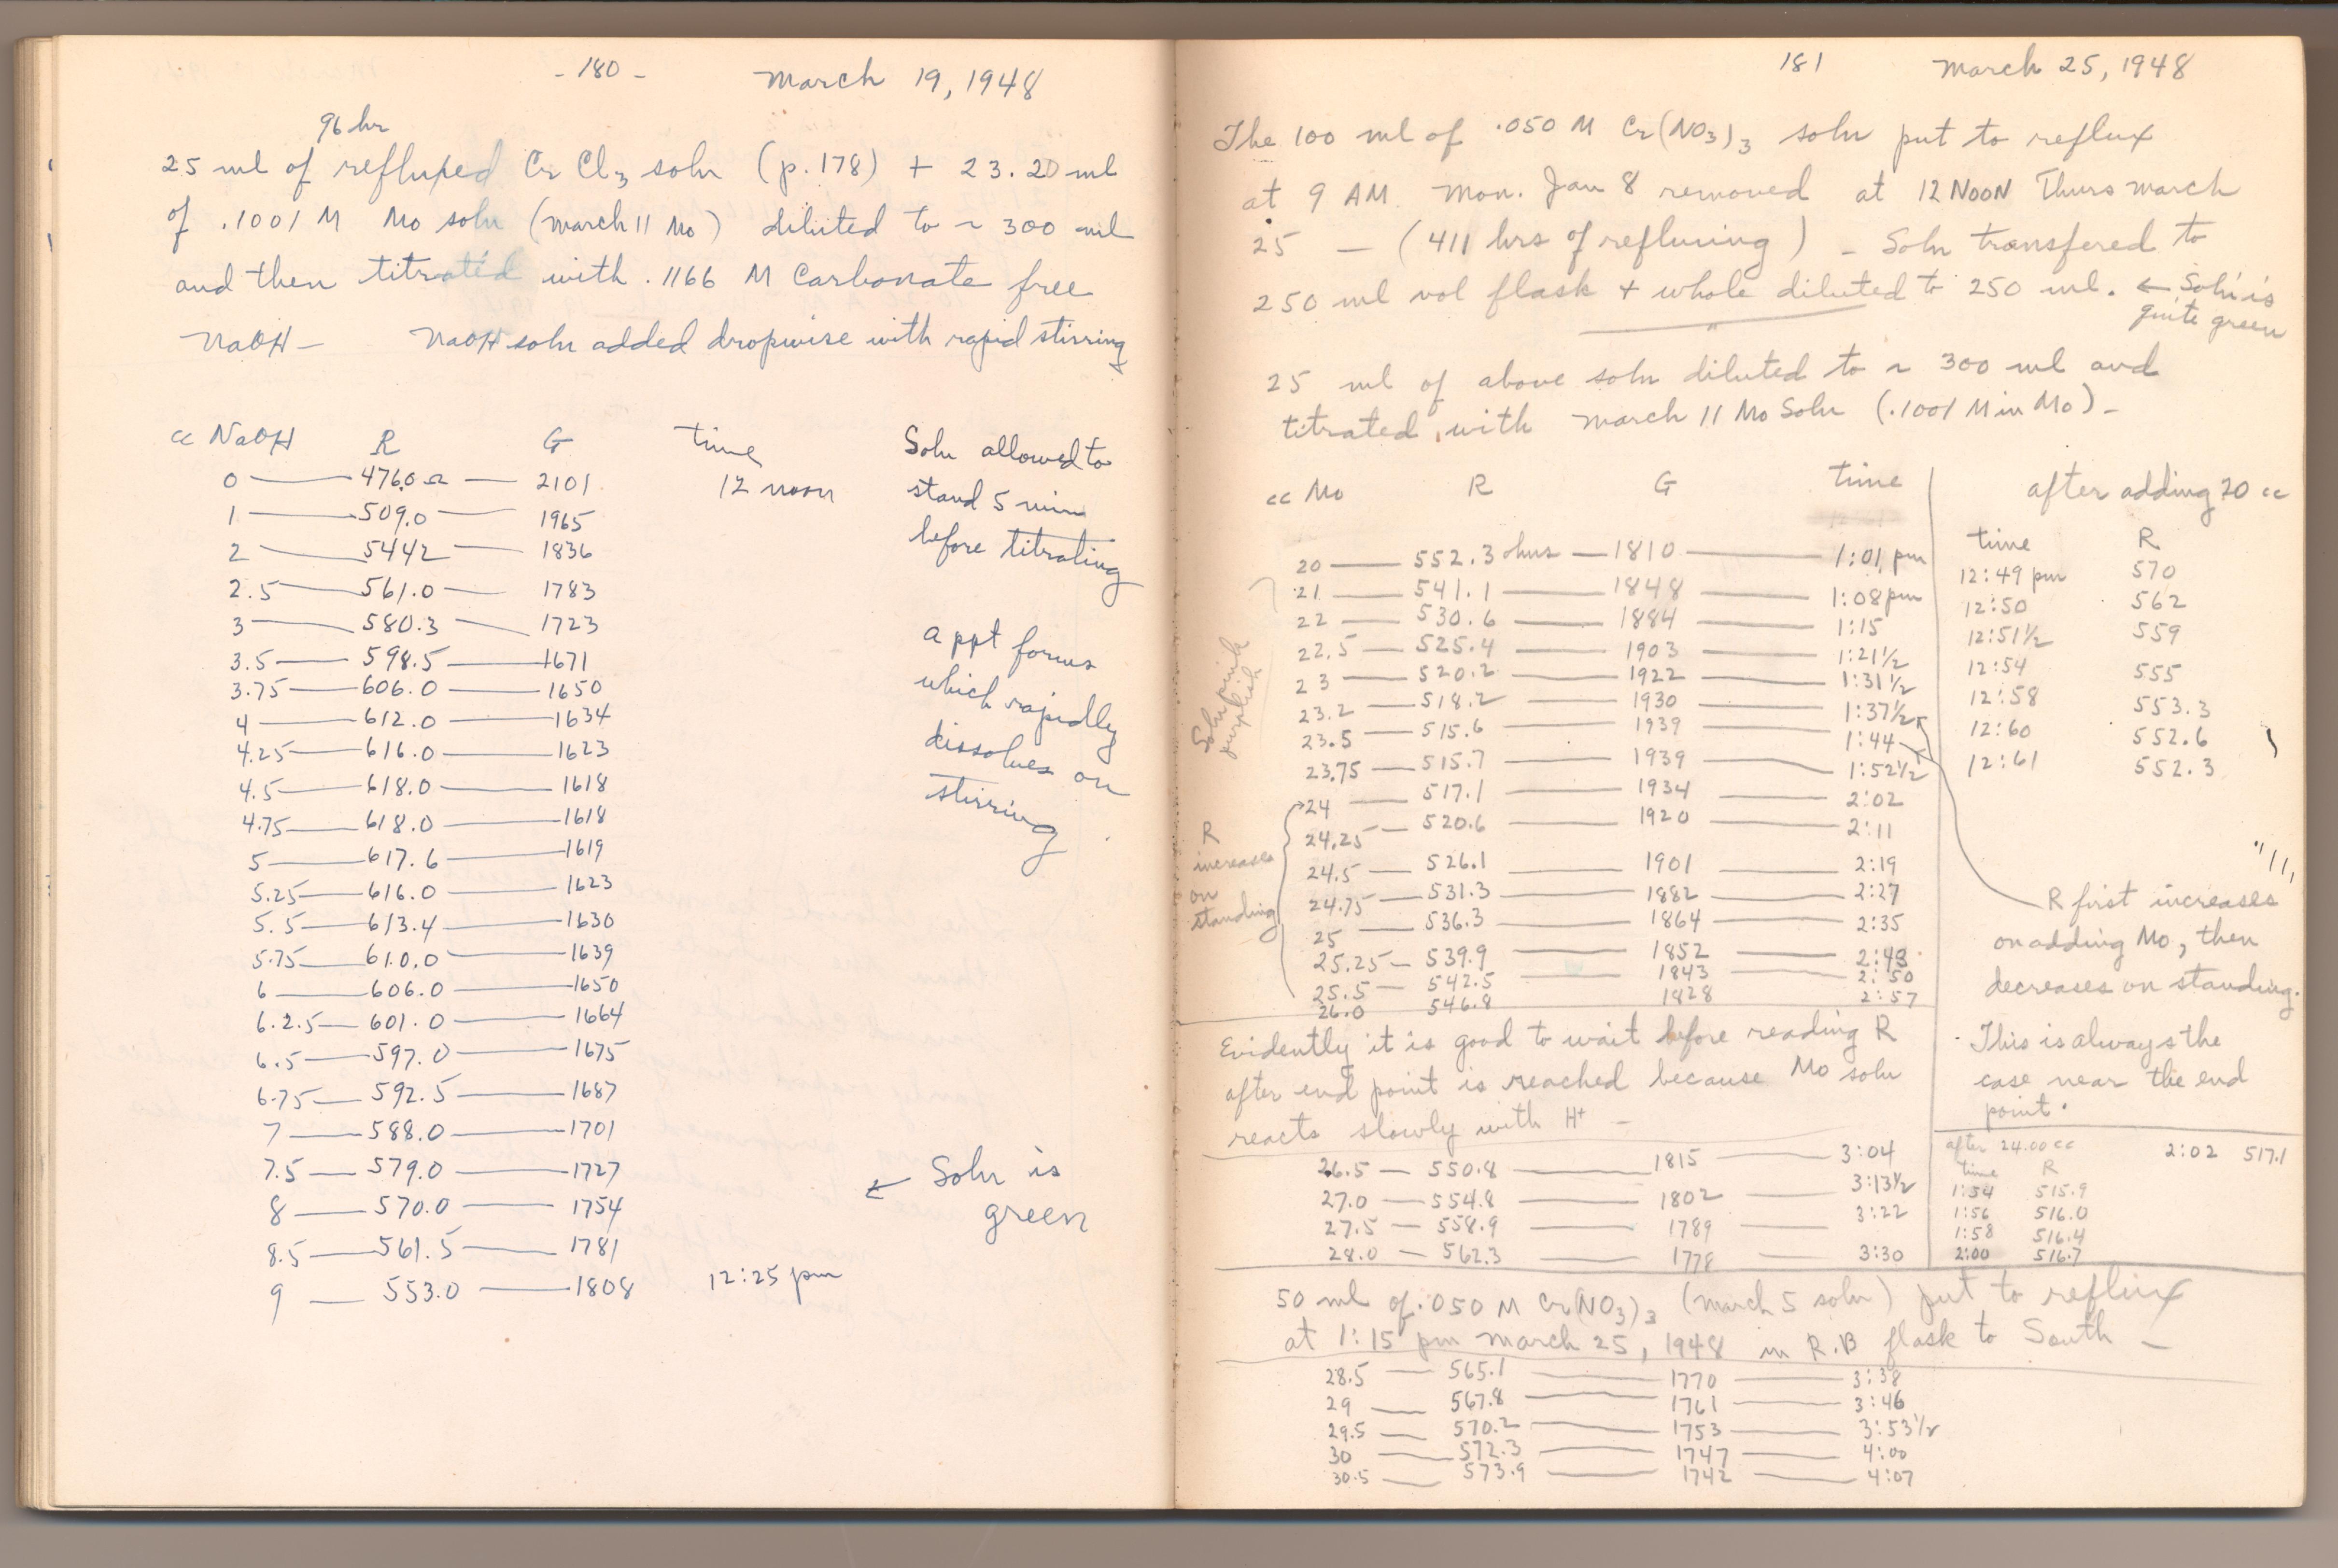 - 180 -
March 19, 1948
96 hr
25 ml of refluxed CrCl3 soln (p.178) + 23.20 ml
of .1001 M Mo soln (march 11 Mo) diluted to ~ 300 ml
and then titrated with .1166 M Carbonate free
NaOH — NaOH soln added dropwise with rapid stirring
cc NaOH R G time
0 — 476.0 Ω — 2101 12 noon
1 — 509.0 — 1965
2 — 544.2 — 1836
2.5 — 561.0 — 1783
3 — 580.3 — 1723
3.5 — 598.5 — 1671
3.75 — 606.0 — 1650
4 — 612.0 — 1634
4.25 — 616.0 — 1623
4.5 — 618.0 — 1618
4.75 — 618.0 — 1618
5 — 617.6 — 1619
5.25 — 616.0 — 1623
5.5 — 613.4 — 1630
5.75 — 610.0 — 1639
6 — 606.0 — 1650
6.25 — 601.0 — 1664
6.5 — 597.0 — 1675
6.75 — 592.5 — 1687
7 — 588.0 — 1701
7.5 — 579.0 — 1727
8 — 570.0 — 1754
8.5 — 561.5 — 1781
9 — 553.0 — 1808 12:25 pm
Soln allowed to
stand 5 min
before titrating
a ppt forms
which rapidly
dissolves on
stirring
← Soln is
green
181
March 25, 1948
The 100 ml of .050 M Cr(NO3)3 soln put to reflux
at 9 AM. Mon. Jan 8 removed at 12 NOON Thurs march
25 — (411 hrs of refluxing) — Soln transfered to
250 ml vol flask + whole diluted to 250 ml. ← Soln is
quite green
25 ml of above soln diluted to ~ 300 ml and
titrated with march 11 Mo Soln (.1001 M in Mo) —
cc Mo R G time
20 — 552.3 ohms — 1810 — 1:01 pm
21 — 541.1 — 1848 — 1:08 pm
22 — 530.6 — 1884 — 1:15
22.5 — 525.4 — 1903 — 1:21 1/2
23 — 520.2 — 1922 — 1:31 1/2
23.2 — 518.2 — 1930 — 1:37 1/2
23.5 — 515.6 — 1939 — 1:44
23.75 — 515.7 — 1939 — 1:52 1/2
24 — 517.1 — 1934 — 2:02
24.25 — 520.6 — 1920 — 2:11
24.5 — 526.1 — 1901 — 2:19
24.75 — 531.3 — 1882 — 2:27
25 — 536.3 — 1864 — 2:35
25.25 — 539.9 — 1852 — 2:43
25.5 — 542.5 — 1843 — 2:50
26.0 546.8 1828 2:57
Soln pink
purplish
R
increases
on
standing
after adding 20 cc
time R
12:49 pm 570
12:50 562
12:51 1/2 559
12:54 555
12:58 553.3
12:60 552.6
12:61 552.3
R first increases
on adding Mo, then
decreases on standing.
This is always the
case near the end
point.
Evidently it is good to wait before reading R
after end point is reached because Mo soln
reacts slowly with H+ —
26.5 — 550.8 — 1815 — 3:04
27.0 — 554.8 — 1802 — 3:13 1/2
27.5 — 558.9 — 1789 — 3:22
28.0 — 562.3 — 1778 — 3:30
after 24.00 cc 2:02 517.1
time R
1:54 515.9
1:56 516.0
1:58 516.4
2:00 516.7
50 ml of .050 M Cr(NO3)3 (march 5 soln) put to reflux
at 1:15 pm march 25, 1948 in R.B flask to South —
28.5 — 565.1 — 1770 — 3:38
29 — 567.8 — 1761 — 3:46
29.5 — 570.2 — 1753 — 3:53 1/2
30 — 572.3 — 1747 — 4:00
30.5 — 573.9 — 1742 — 4:07